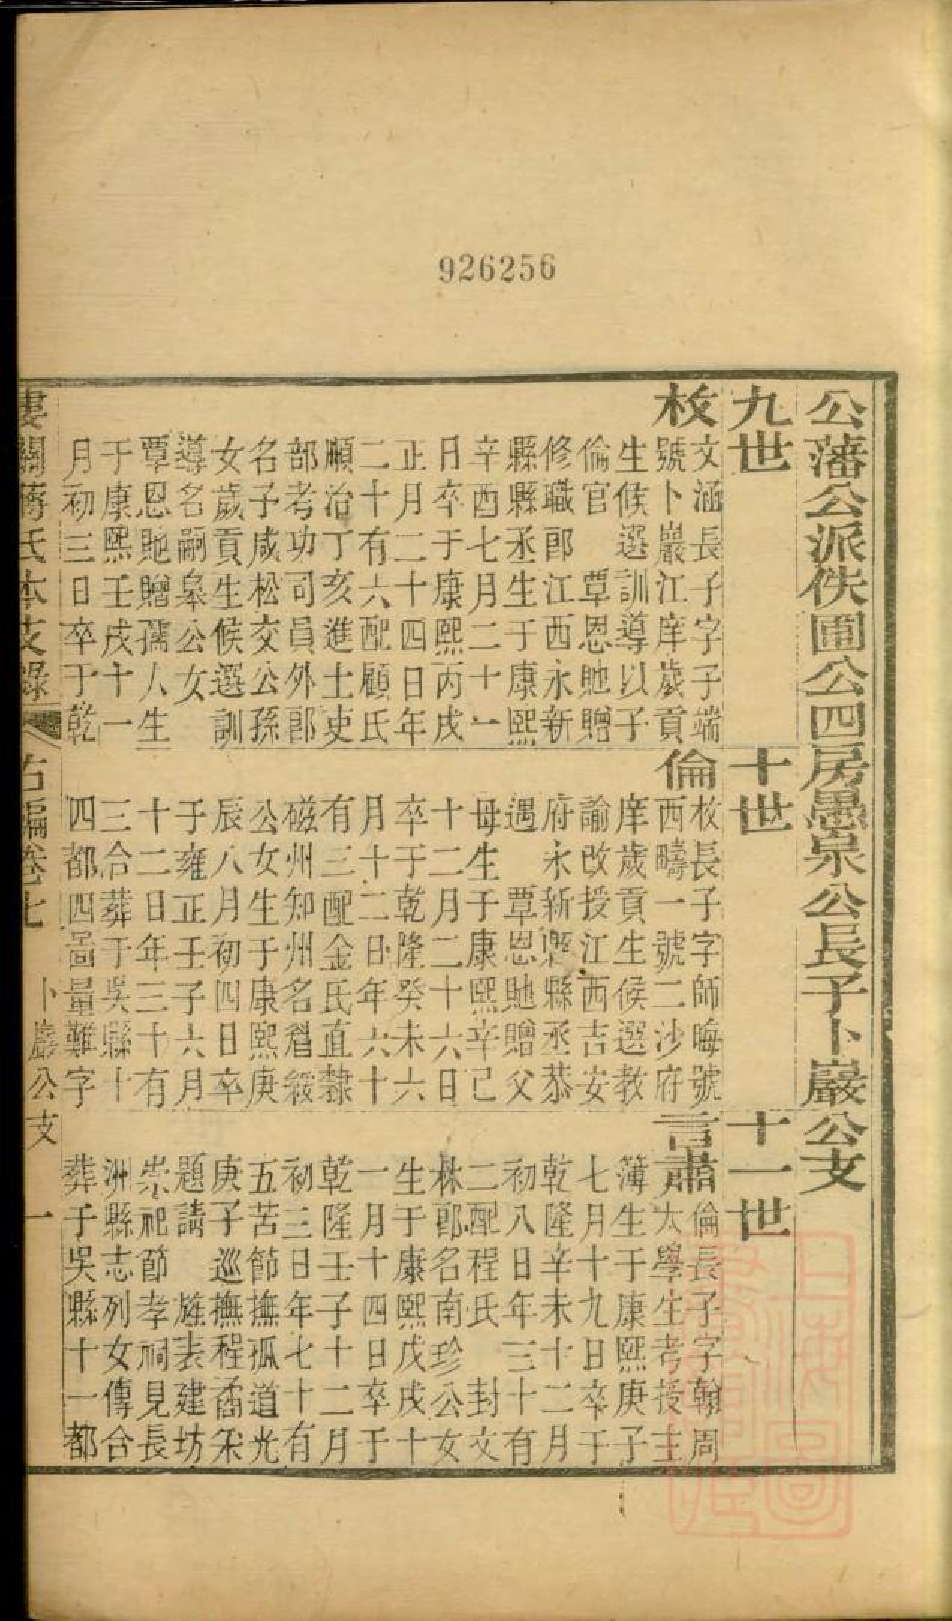 926256
公藩公派佚圃公四房愚泉公長子卜巖公支
九世
十世
十一世
校
文涵長子字子端
號卜巖江庠歲貢
生候選訓導以子
倫官　覃恩貤贈
修職郎江西永新
縣縣丞生于康熙
辛酉七月二十一
日卒于康熙丙戌
正月二十四日年
二十有六配顧氏
順治丁亥進士吏
部考功司員外郎
名子咸松交公孫
女歲貢生候選訓
導名嗣皋公女
覃恩貤贈孺人生
于康熙壬戌十一
月初三日卒于乾
倫
校長子字師晦號
西疇一號二沙府
庠歲貢生候選教
諭改授江西吉安
府永新縣縣丞恭
遇　覃恩貤贈父
母生于康熙辛己
十二月二十六日
卒于乾隆癸未六
月十二日年六十
有三配金氏直隸
磁州知州名睂綬
公女生于康熙庚
辰八月初四日卒
于雍正壬子六月
十二日年三十有
三合葬于吳縣十
四都四啚量難字
言肅
倫長子字翰周
太學生考授主
簿生于康熙庚子
七月十九日卒于
乾隆辛未十二月
初八日年三十有
二配程氏　封文
林郎名南珍公女
生于康熙戊戌十
一月十四日卒于
乾隆壬子十二月
初三日年七十有
五苦節撫孤道光
庚子巡撫程矞采
題請　旌表建坊
崇祀節孝祠見長
洲縣志列女傳合
葬于吳縣十一都
婁關蔣氏本支錄
右編卷七
卜巖公支
一